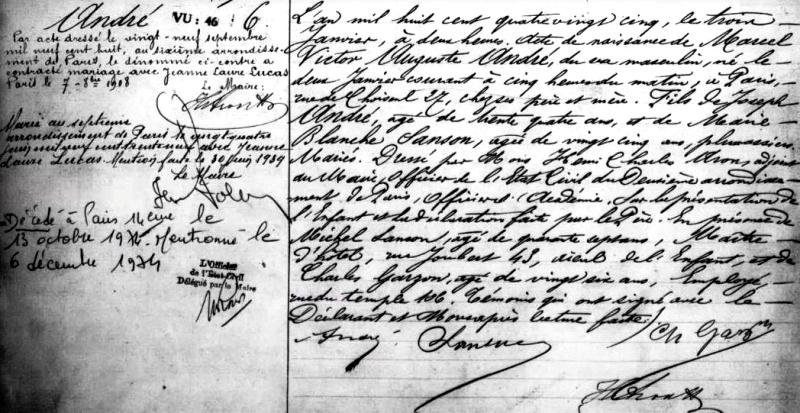 André
VU: 46 : 6.
Par acte dressé le vingt-neuf septembre
mil neuf cent huit, au sixième arrondisse-
ment de Paris, le dénommé ci-contre a
contracté mariage avec Jeanne Laure Lucas
Paris le 7-8bre 1908
Le Maire:
Marié au septième
arrondissement de Paris le vingt quatre
juin mil neuf cent trente neuf avec Jeanne
Laure Lucas. Mention faite le 30 juin 1939
Le Maire
Décédé à Paris 14ème le
13 octobre 1974. Mentionné le
6 décembre 1974
L'Officier
de l'Etat-Civil
Délégué par le Maire
L'an mil huit cent quatre vingt cinq, le trois
Janvier, à deux heures. Acte de naissance de Marcel
Victor Auguste André, du sexe masculin, né le
deux janvier courant à cinq heures du matin, à Paris,
rue de Choiseul 27, chez ses père et mère. Fils de Joseph
André, âgé de trente quatre ans, et de Marie
Blanche Sanson, agée de vingt cinq ans, plumassiers
Mariés. Dressé par Nous Henri Charles Aron, adjoint
au Maire, Officier de l'Etat Civil du Deuxième arrondisse-
ment de Paris, Officier d'Académie. Sur la présentation de
l'Enfant et la déclaration faite par le Père. En présence de
Michel Sanson, agé de quarante sept ans, Maître
d'hôtel, rue Joubert 43, aïeul de l'Enfant, et de
Charles Garzon, agé de vingt six ans, Employé,
rue du temple 106. Témoins qui ont signé avec le
Déclarant et Nous après lecture faite/.
André
Sanson
Ch Garzon